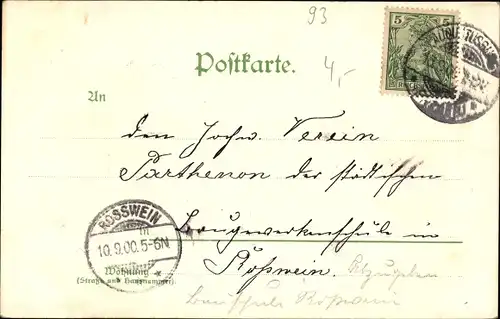 93
5
Postkarte.
4,-
An
den Hochw. Verein
Parthenon der städtischen
Baugewerkenschule in
Roßwein.
Abzugeben
Bauschule Roßwein
ROSSWEIN
10.9.00.5-6N
Wohnung
(Straße und Hausnummer)